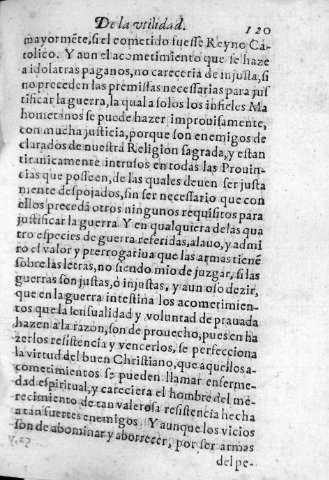 De la vtilidad. 120
mayormẽte, si el cometido fuesse Reyno Ca-
tolico. Y aun el acometimiento que se haze
a idolatras paganos, no careceria de injusta, si
no preceden las premissas necessarias para jus
tificar la guerra, la qual a solos los infieles Ma
hometanos se puede hazer improuisamente,
con mucha justicia, porque son enemigos de
clarados de nuestra Religion sagrada, y estan
tiranicamente intrusos en todas las Prouin-
cias que posseen, de las quales deuen ser justa
mente despojados, sin ser necessario que con
ellos precedã otros ningunos requisitos para
justificar la guerra. Y en qualquiera de las qua
tro especies de guerra referidas, alauo, y admi
ro el valor y prerrogatiua que las armas tienẽ
sobre las letras, no siendo mio de juzgar, si las
guerras son justas, ò injustas, y aun oso dezir,
que en la guerra intestina los acometimien-
tos que la sensualidad y voluntad de prauada
hazen a la razon, son de prouecho, pues en ha
zerlos resistencia y vencerlos, se perfecciona
la virtud del buen Christiano, que aquellos a-
cometimientos se pueden llamar enferme-
dad espiritual, y careciera el hombre del me-
recimiento de tan valerosa resistencia hecha
a tan fuertes enemigos. Y aunque los vicios
son de abominar y aborrecer, por ser armas
del pe-